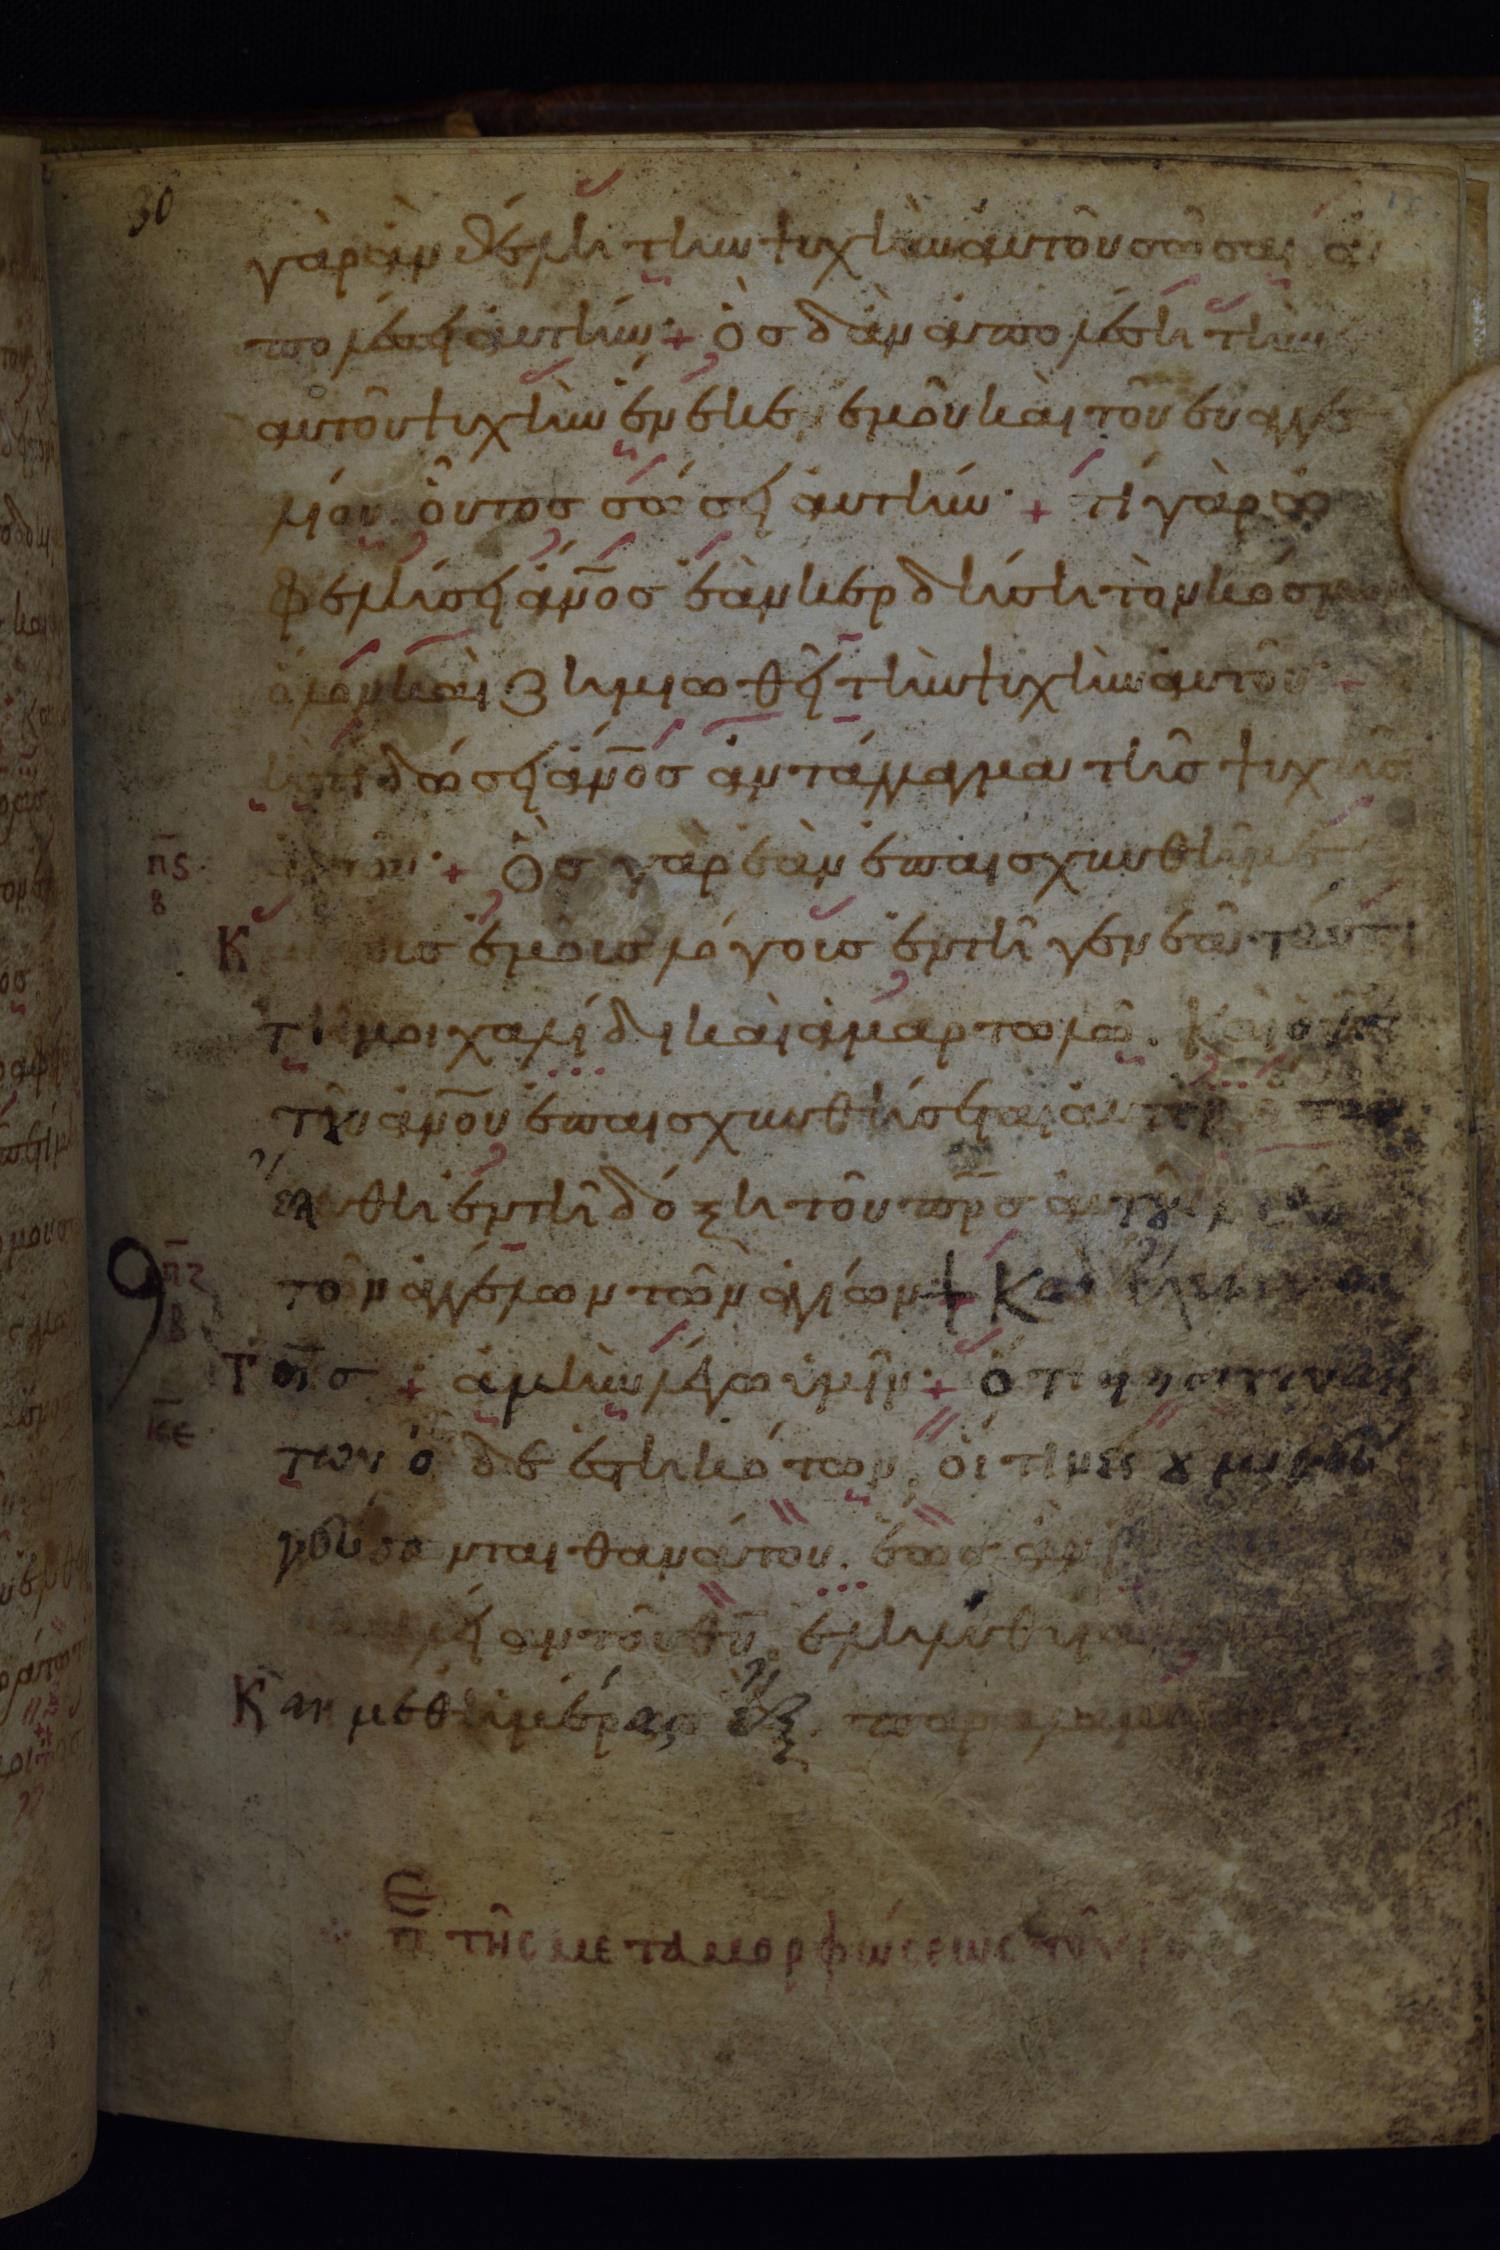 30
γὰρ ἂν θέλη τὴν ψυχὴν αὐτοῦ σῶσαι ἀ
πολέσει αὐτήν· + Ὃς δ' ἂν ἀπολέση τὴν
αὐτοῦ ψυχὴν ἕνεκεν ἐμοῦ καὶ τοῦ εὐαγγε
λίου. οὗτος σώσει αὐτήν· + τί γὰρ ὠ
φελήσει ἄν̅ο̅ς ἐὰν κερδήση τὸν κόσμον
ὅλον καὶ ζημιωθῆ τὴν ψυχὴν αὐτοῦ·
ἢ τί δώσει ἄν̅ο̅ς ἀντάλλαγμα τῆς ψυχῆς
αὐτοῦ· + Ὃς γὰρ ἐὰν ἐπαισχυνθῆ με
π̅ς̅
β
Κ τοὺς ἐμοὺς λόγους ἐν τῆ γενεᾶ ταύτη
τῆ μοιχαλίδι καὶ ἁμαρτωλῶ. Καὶ ὁ υ̅ς̅
τοῦ ἀν̅ο̅υ ἐπαισχυνθήσεται αὐτὸν ὅταν
ἔλθη ἐν τῆ δόξη τοῦ π̅ρ̅ς αὐτοῦ
τῶν ἀγγέλων τῶν ἁγίων + Καὶ ἔλεγεν αὐ
π̅ζ̅
β
Τοῖς + ἀμὴν λέγω ὑμῖν· + ὅτι εἰσί τινὲς
κ̅ε̅
των ὧδε ἑστηκότων, οἵτινες ȣ μὴ
γεύσονται θανάτου. ἕως ἂν
αὐτοῦ θ̅υ̅. ἐληλυθυῖαν
Καὶ μεθ' ἡμέρας ἓξ παραλαμ
π τῆς μεταμορφώσεως τοῦ